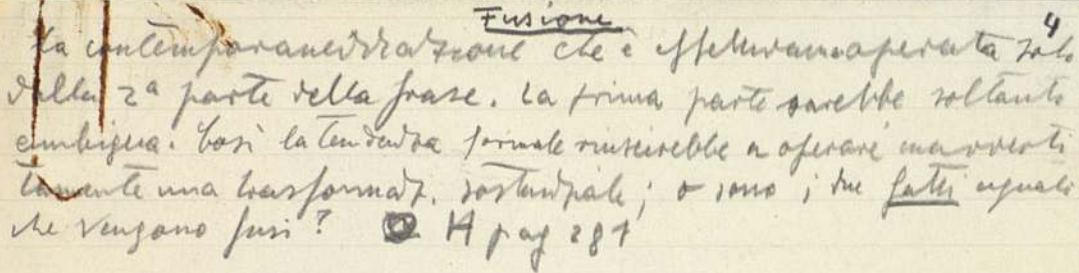 Fusione 4
La contemporaneizzazione che è effetturam operata solo
dalla 2ª parte della frase. La prima parte sarebbe soltanto
ambigua. Così la tendenza formale riuscirebbe a operare inavverti
tamente una trasformaz. sostanziale; o sono i due fatti uguali
che vengono fusi? H pag 281